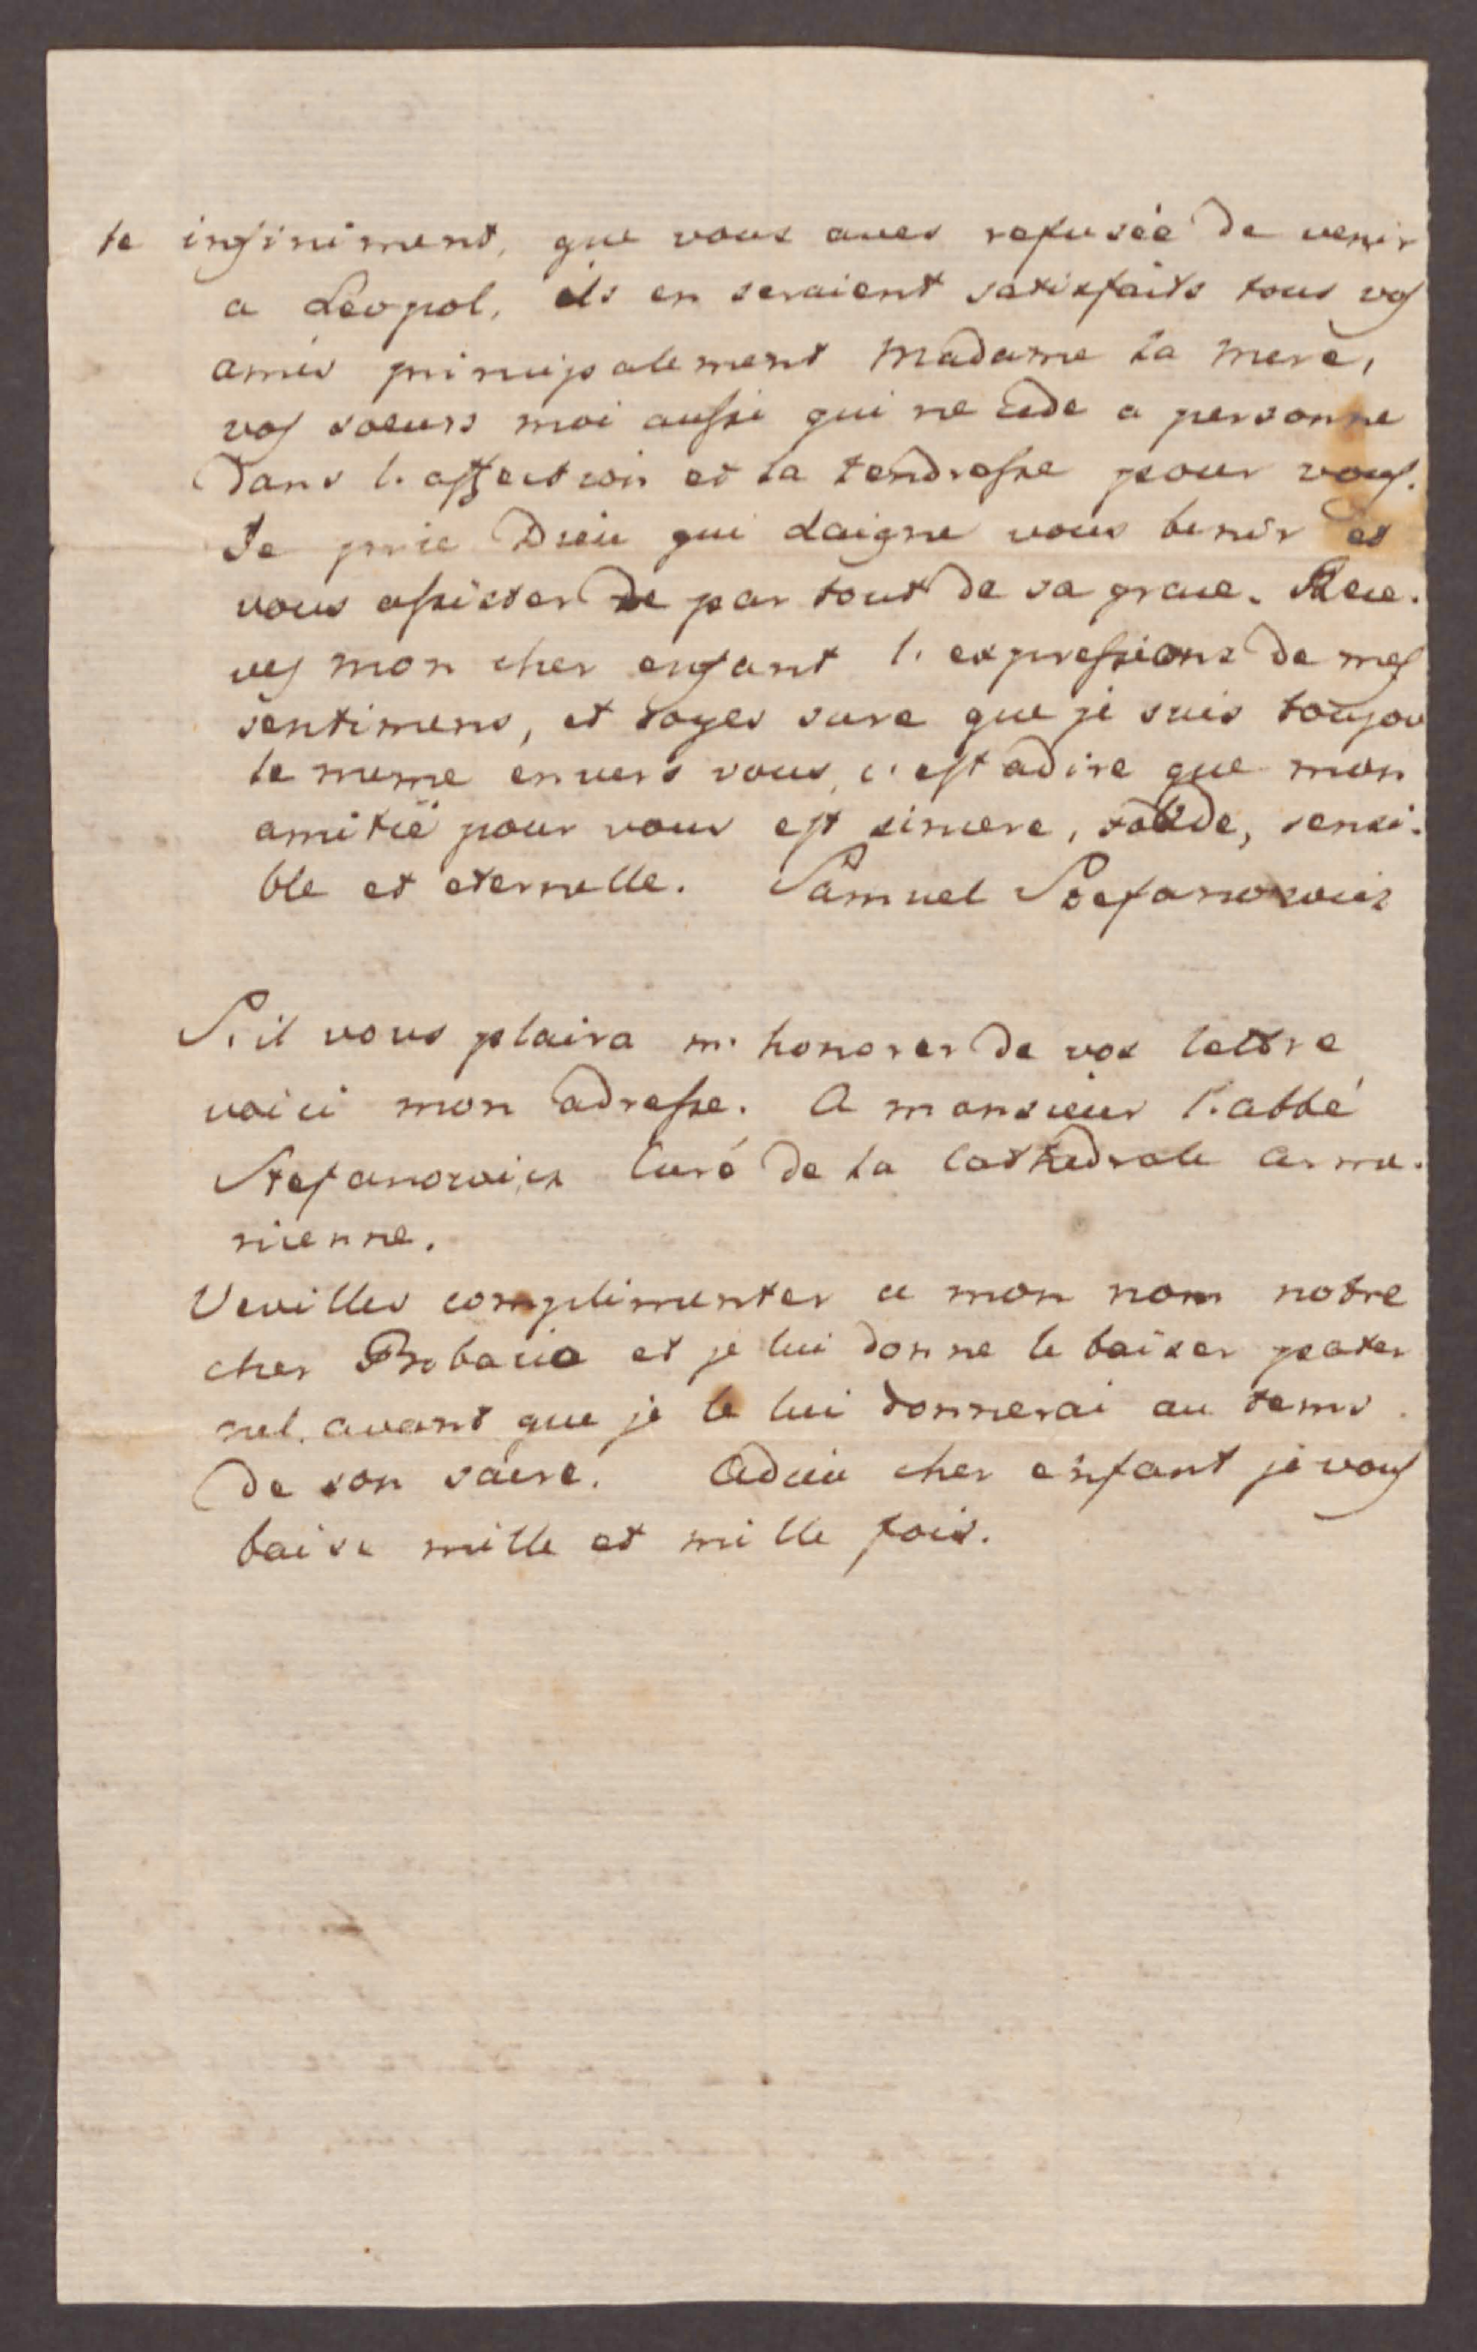 te infiniment, que vous aves refusée de venir
a Léopol, ils en seraient satisfaits tous vos
amis principalement Madame la mere,
vos soeurs moi aussi qui ne cede a personne
dans l'affection et la tendresse pour vous.
Je prie Dieu qui daigne vous benir et
vous assister de par tout de sa grace. Rece-
ves mon cher enfant l'expressions de mes
sentimens, et soyes sure que je suis toujou
le meme envers vous, c'est adire que mon
amitié pour vous est sincere, solide, sensi-
ble et eternelle. Samuel Stefanowicz
S'il vous plaira m'honorer de vos lettre
voici mon adresse. A monsieur l'abbé
Stefanowicz Curé de la Cathedrale arme-
nienne.
Veuilles complimenter a mon nom notre
cher et je lui donne le baiser pater
nel, avant que je le lui donnerai au tems
de son sacre. Adieu cher enfant je vous
baise mille et mille fois.